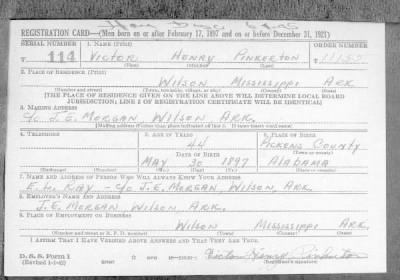 REGISTRATION CARD—(Men born on or after February 17, 1897 and on or before December 31, 1921)
SERIAL NUMBER 1. NAME (Print) ORDER NUMBER
T 114 VICTOR HENRY PINKERTON
(First) (Middle) (Last)
2. PLACE OF RESIDENCE (Print)
WILSON MISSISSIPPI ARK.
(Number and street) (Town, township, village, or city) (County) (State)
[THE PLACE OF RESIDENCE GIVEN ON THE LINE ABOVE WILL DETERMINE LOCAL BOARD
JURISDICTION; LINE 2 OF REGISTRATION CERTIFICATE WILL BE IDENTICAL]
3. MAILING ADDRESS
C/O J.E. MORGAN, WILSON ARK.
[Mailing address if other than place indicated on line 2. If same insert word same]
4. TELEPHONE 5. AGE IN YEARS 6. PLACE OF BIRTH
44 PICKENS COUNTY
DATE OF BIRTH (Town or county)
MAY 30 1897 ALABAMA
(Exchange) (Number) (Mo.) (Day) (Yr.) (State or country)
7. NAME AND ADDRESS OF PERSON WHO WILL ALWAYS KNOW YOUR ADDRESS
E. H. KAY - C/O J.E. MORGAN, WILSON, ARK.
8. EMPLOYER'S NAME AND ADDRESS
J.E. MORGAN WILSON, ARK.
9. PLACE OF EMPLOYMENT OR BUSINESS
WILSON MISSISSIPPI ARK.
(Number and street or R. F. D. number) (Town) (County) (State)
I AFFIRM THAT I HAVE VERIFIED ABOVE ANSWERS AND THAT THEY ARE TRUE.
D. S. S. Form 1 Victor Henry Pinkerton
(Revised 1-1-42) (Registrant's signature)